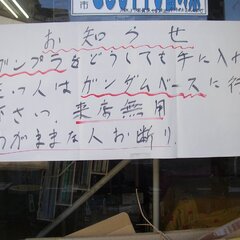 市
お知らせ
ガンプラをどうしても手に入れ
たい人はガンダムベースに行
下さい。来店無用
わがままな人お断り